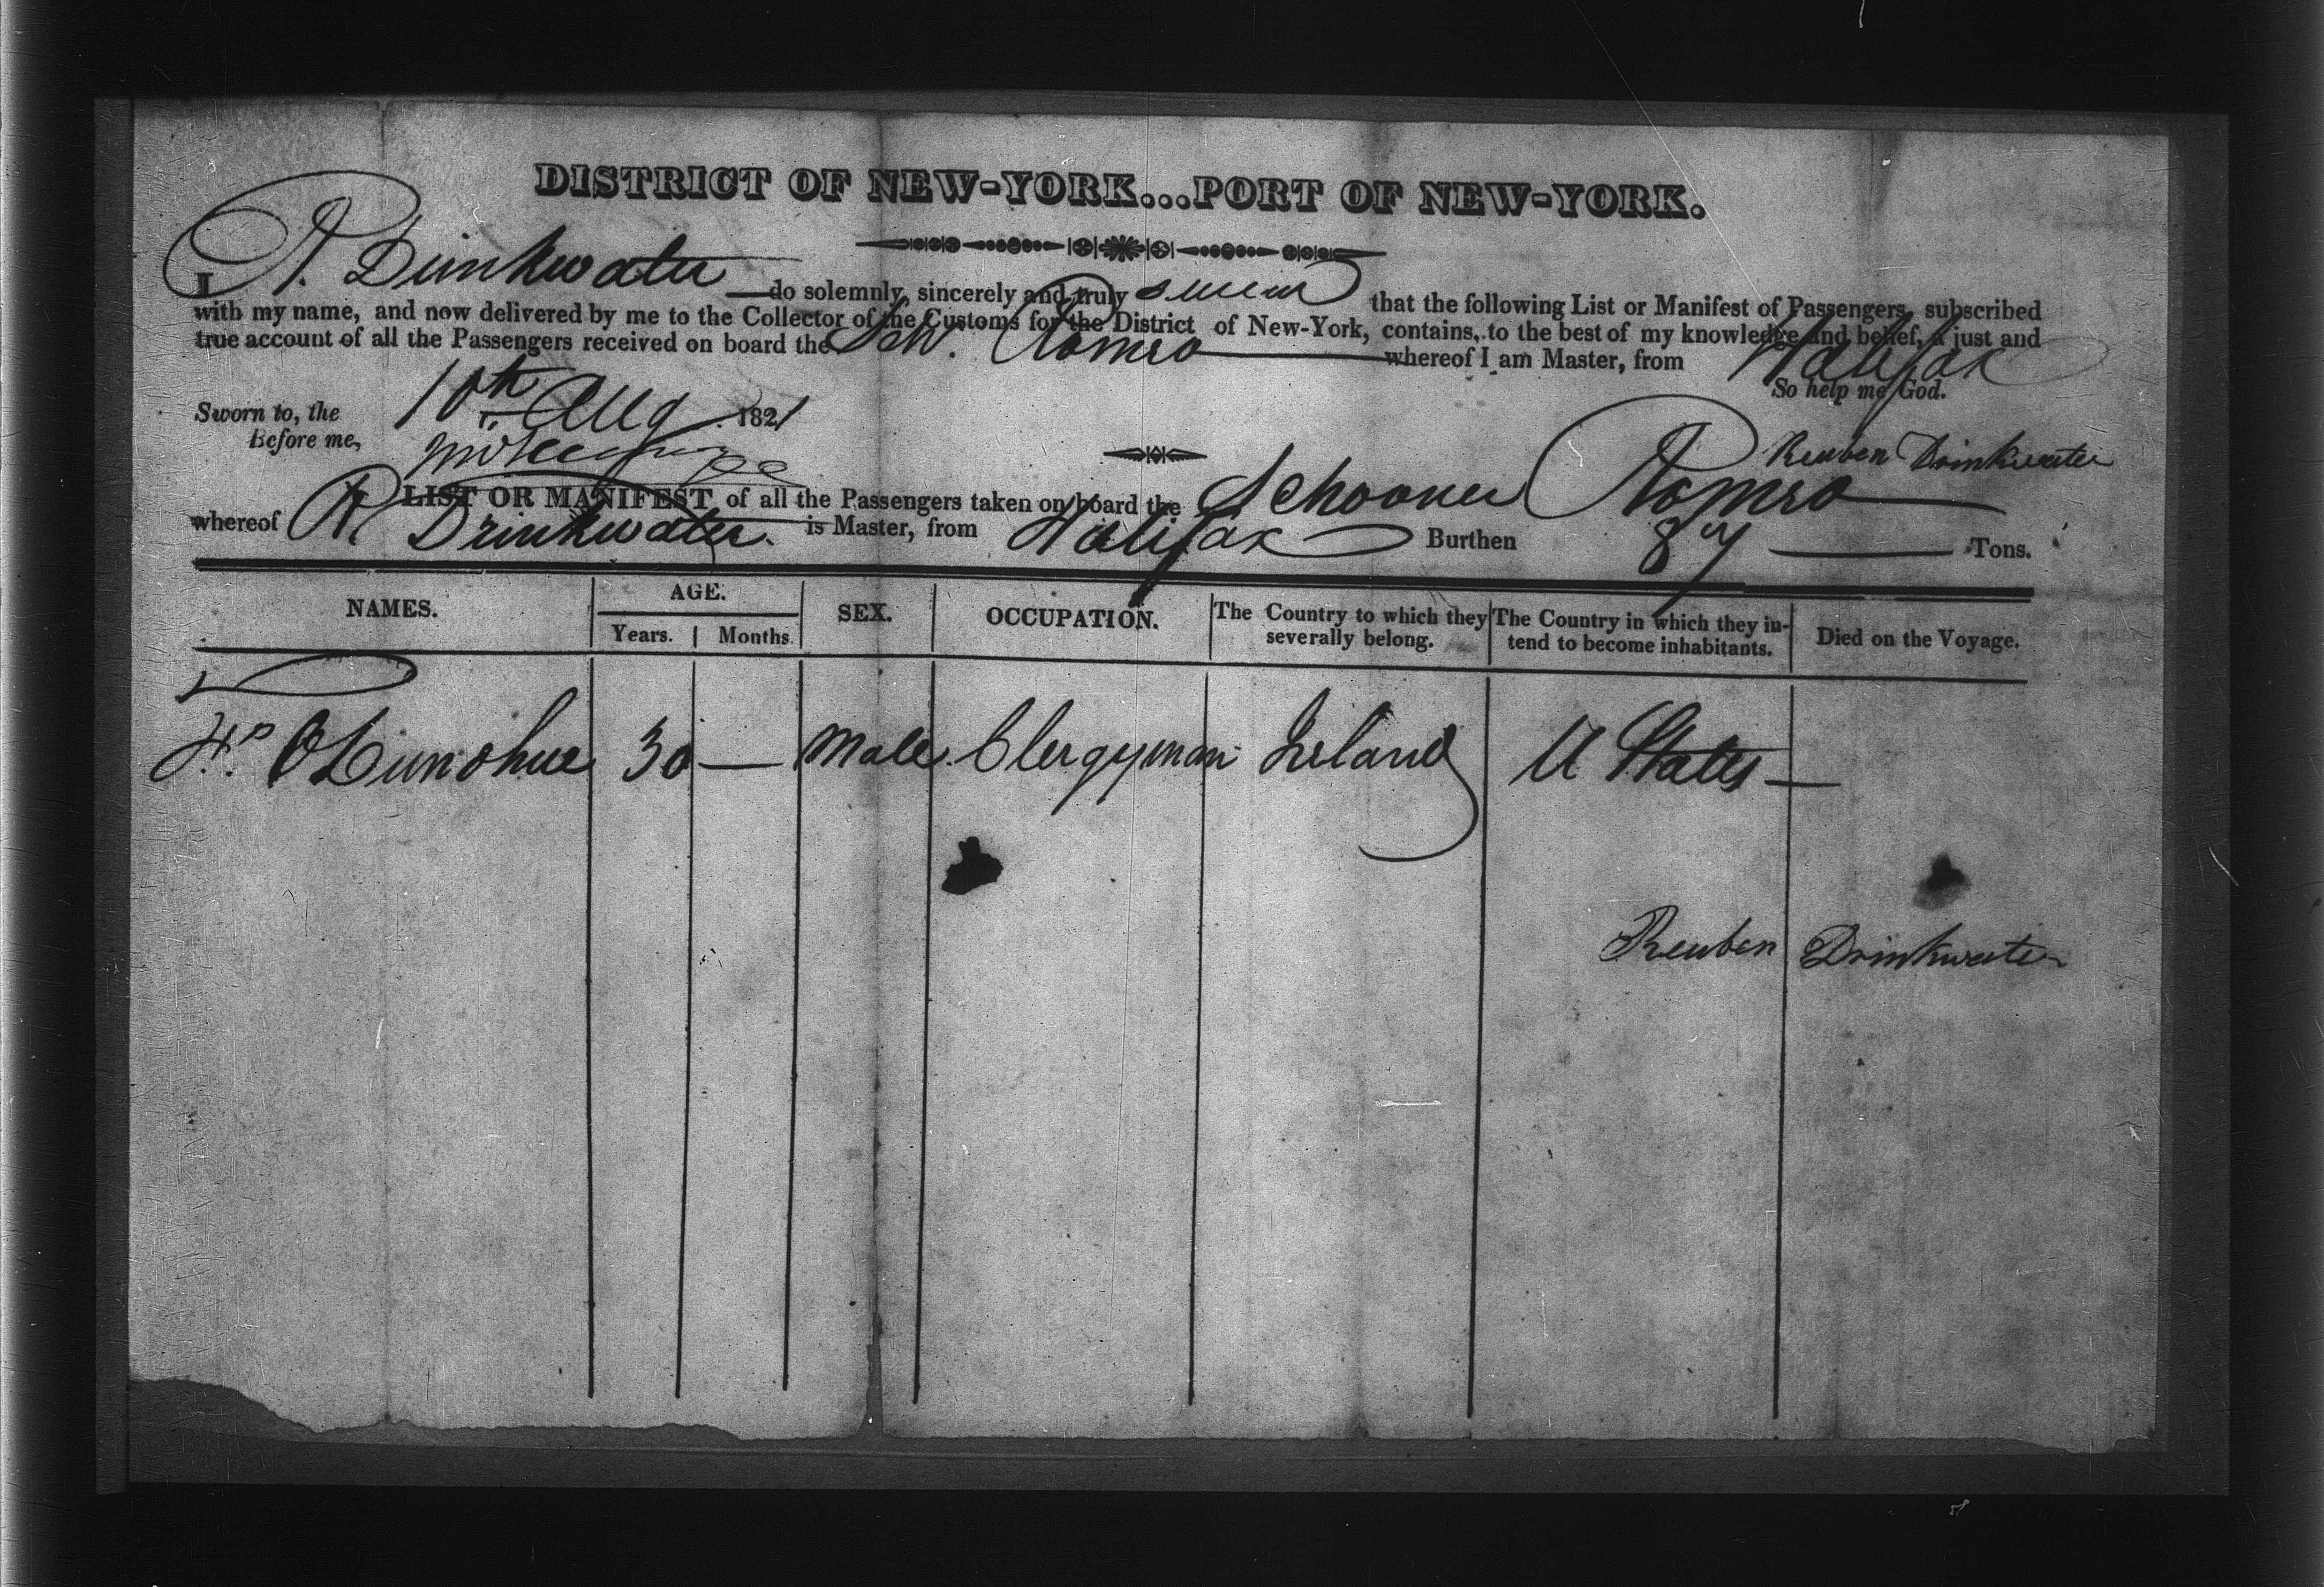 DISTRICT OF NEW-YORK...PORT OF NEW-YORK.
I R. Drinkwater do solemnly, sincerely and truly swear that the following List or Manifest of Passengers, subscribed
with my name, and now delivered by me to the Collector of the Customs for the District of New-York, contains, to the best of my knowledge and belief, a just and
true account of all the Passengers received on board the Schr. Romeo whereof I am Master, from Halifax
So help me God.
Sworn to, the 10th Aug 1821
Before me,
Reuben Drinkwater
LIST OR MANIFEST of all the Passengers taken on board the Schooner Romeo
whereof R Drinkwater is Master, from Halifax Burthen 87 Tons.
NAMES. AGE. Years. Months. SEX. OCCUPATION. The Country to which they severally belong. The Country in which they intend to become inhabitants. Died on the Voyage.
O Dunohue 30 — Male Clergyman Ireland U States —
Reuben Drinkwater